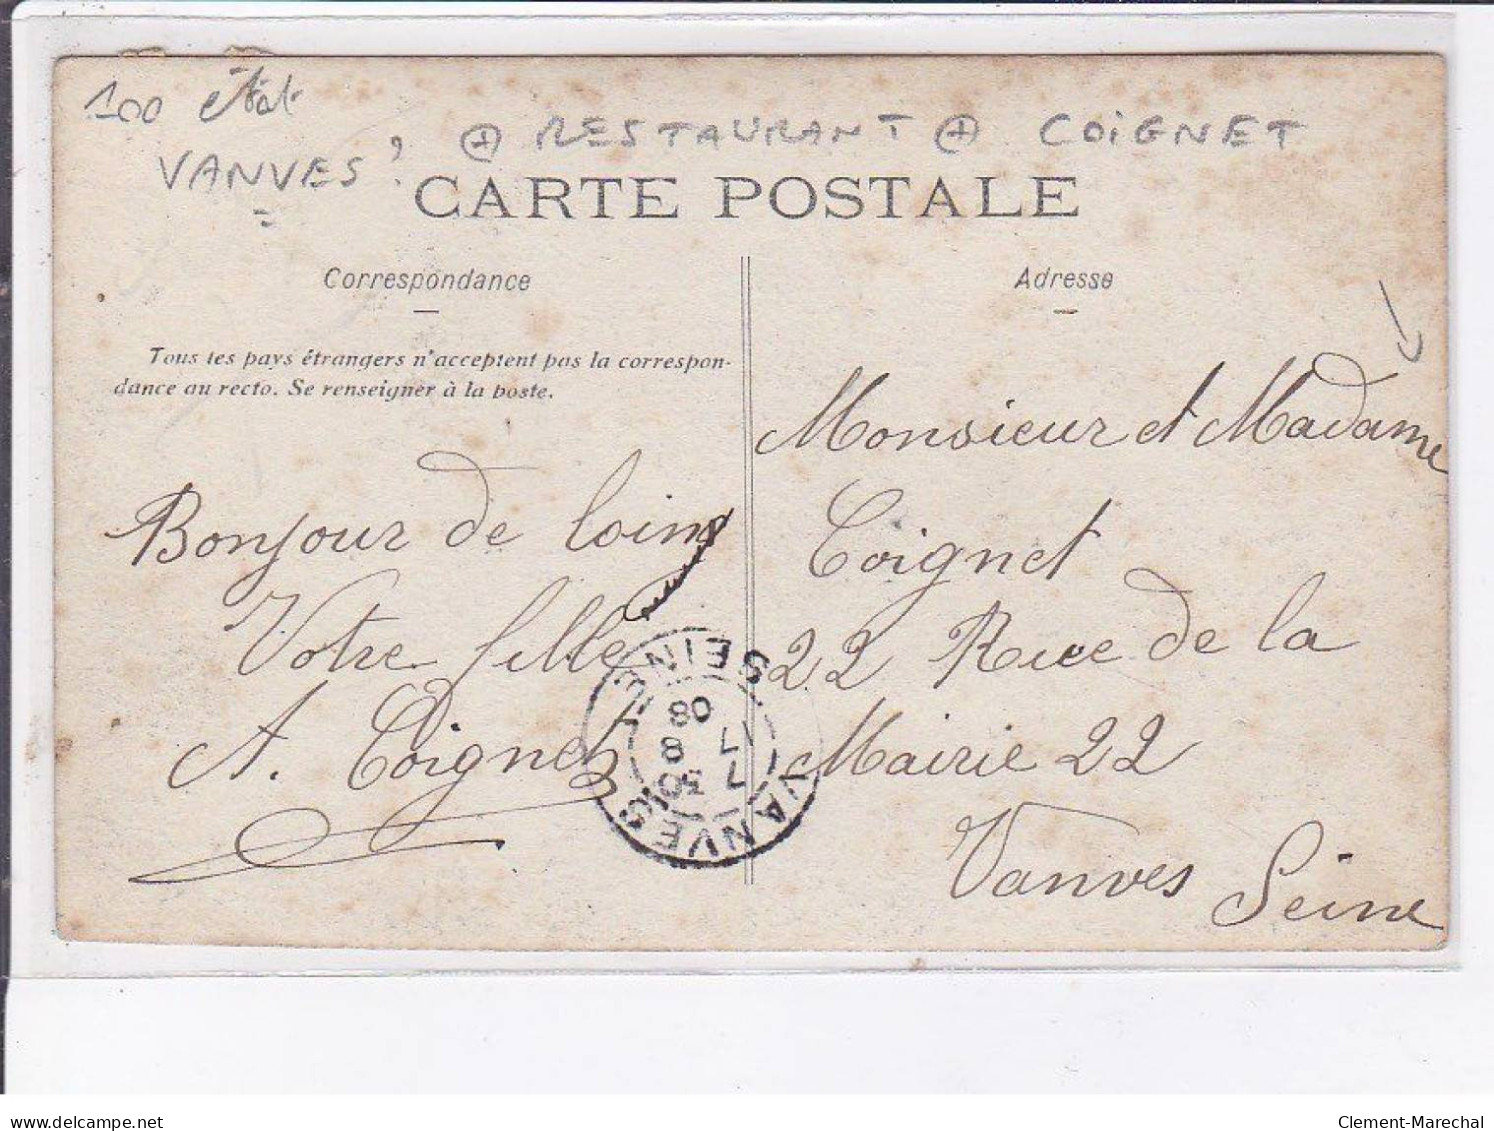 100 état
VANVES ? ⊕ RESTAURANT ⊕ COIGNET
CARTE POSTALE
Correspondance
Tous les pays étrangers n'acceptent pas la correspon-
dance au recto. Se renseigner à la poste.
Bonjour de loin
Votre fille
A. Coignet
Adresse
Monsieur et Madame
Coignet
22 Rue de la
Mairie 22
Vanves Seine
VANVES SEINE
7 50
17 8
08
delcampe.net
Clement-Marechal